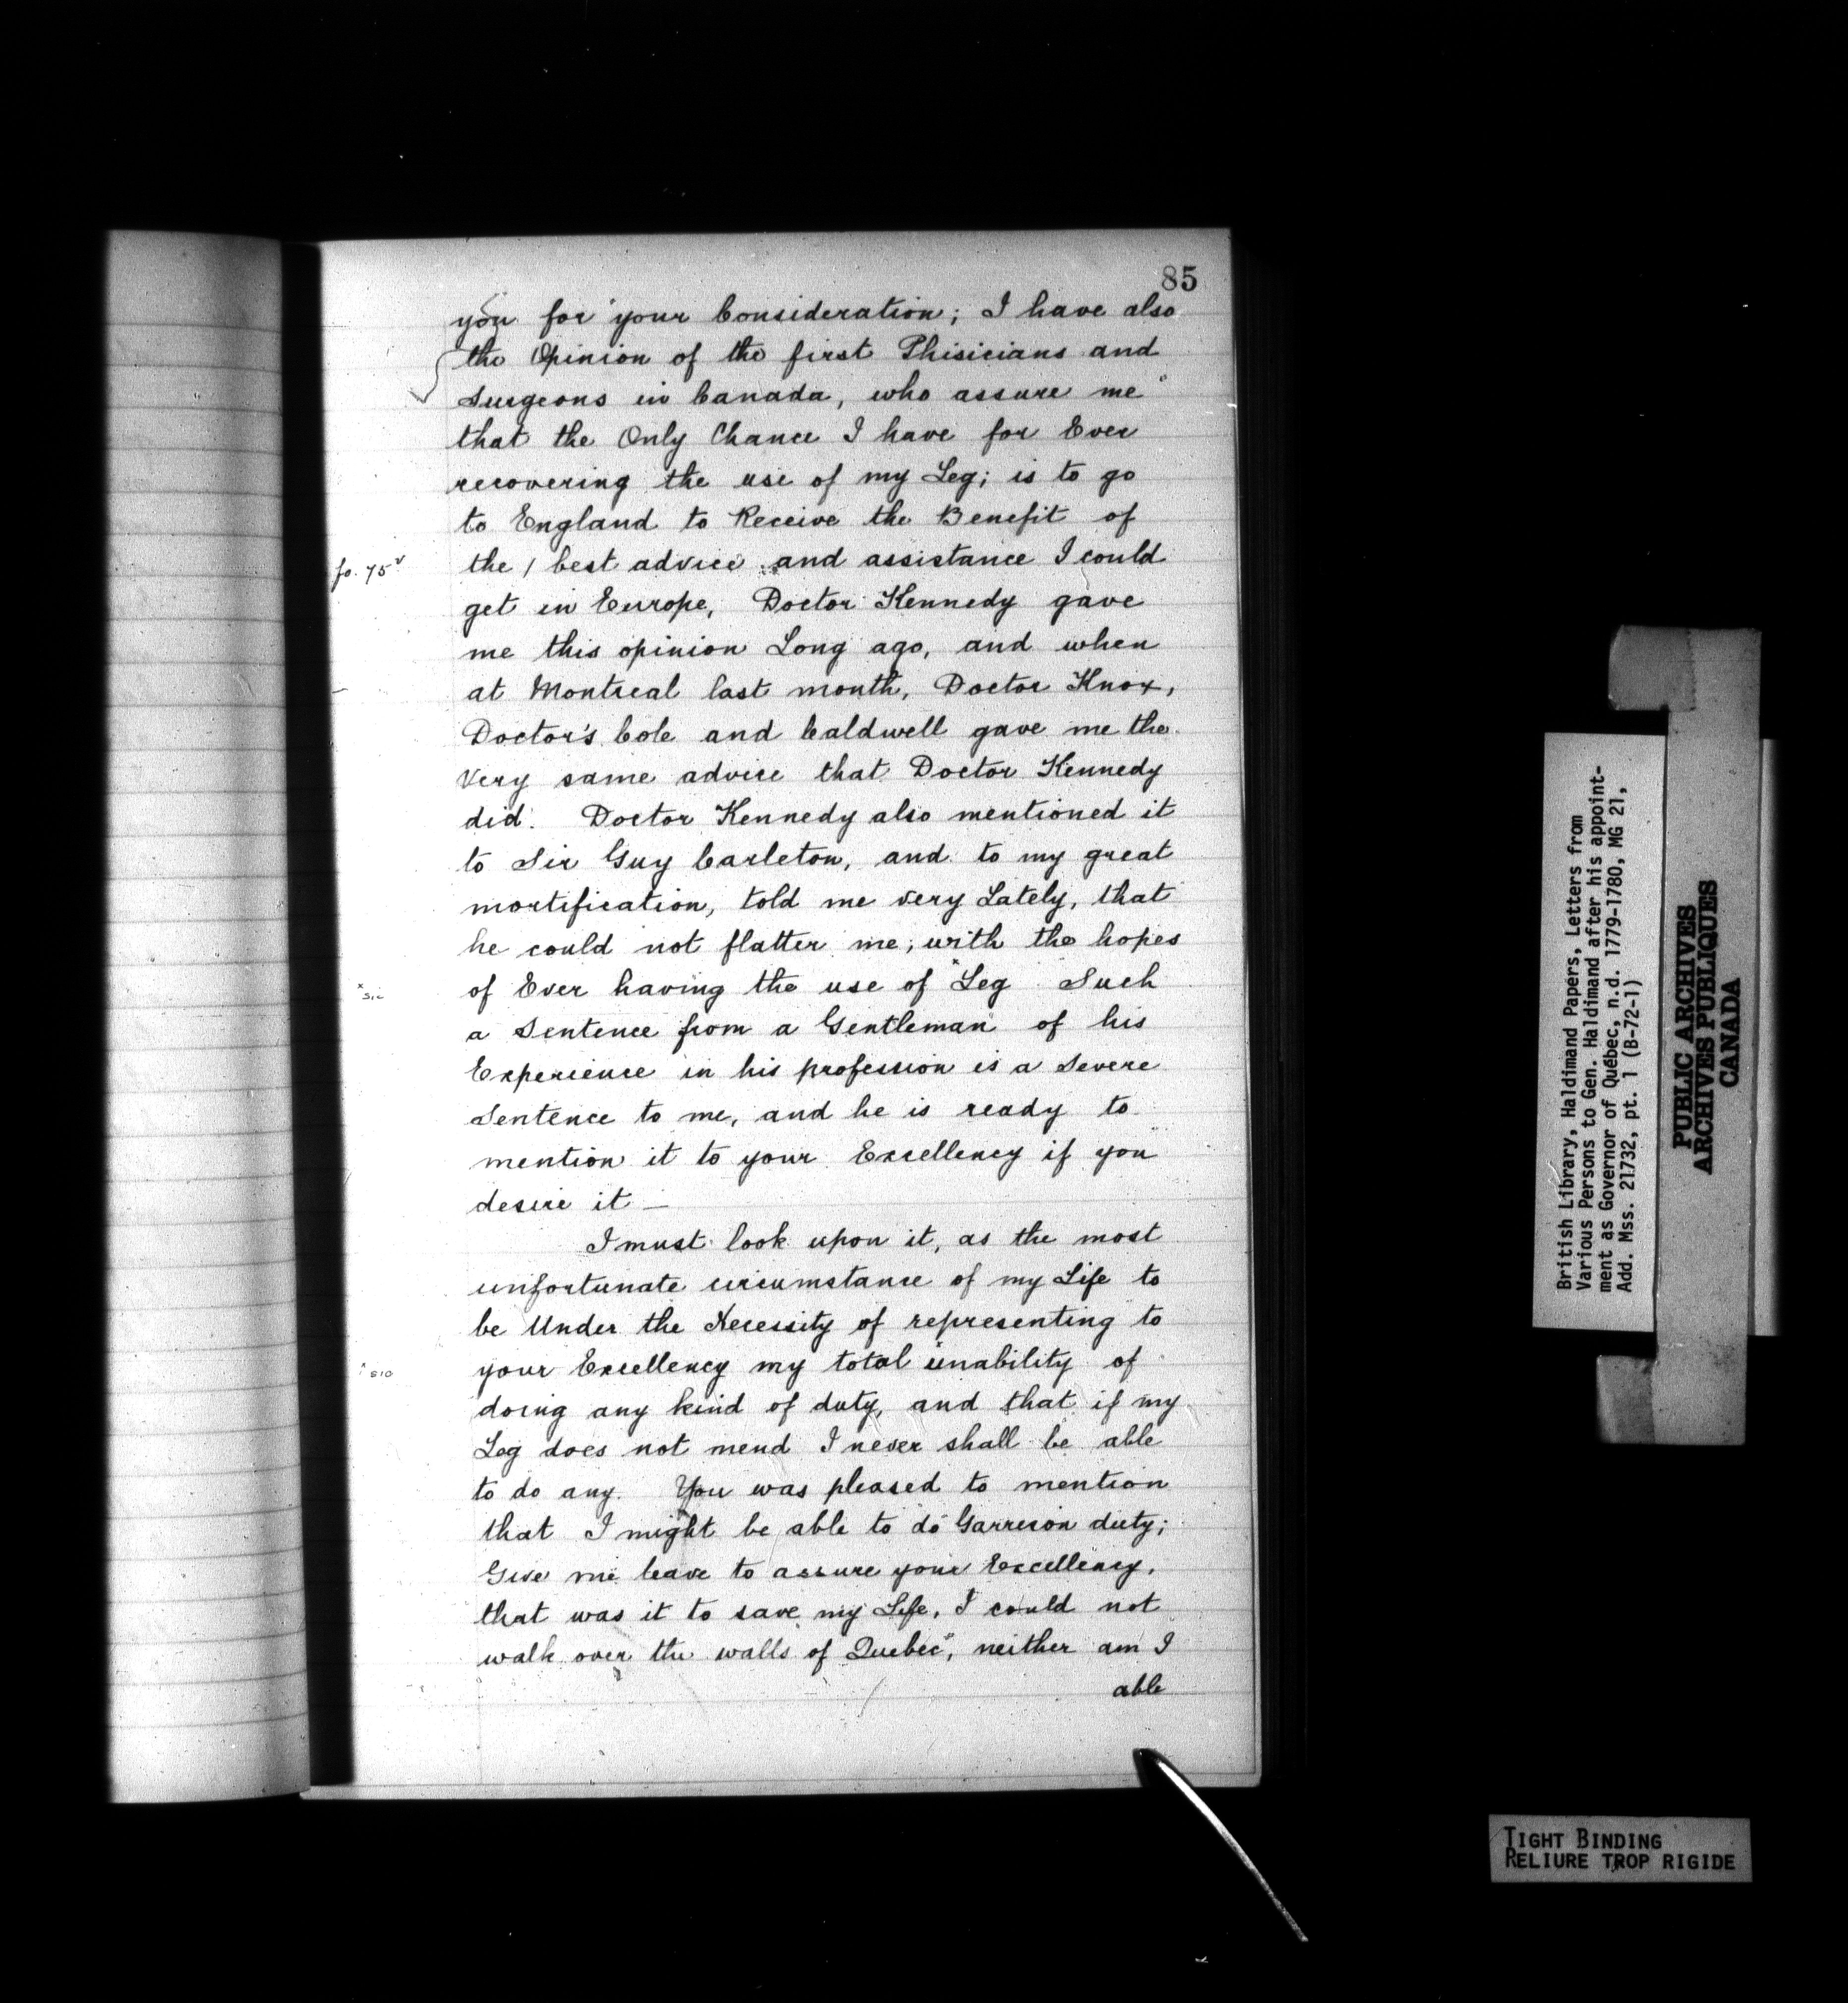 85
you for your Consideration; I have also
the Opinion of the first Phisicians and
Surgeons in Canada, who assure me
that the Only Chance I have for Ever
recovering the use of my Leg; is to go
to England to Receive the Benefit of
fo. 75v the / best advice and assistance I could
get in Europe, Doctor Kennedy gave
me this opinion Long ago, and when
at Montreal last month, Doctor Knox,
Doctor's Cole and Caldwell gave me the
Very same advise that Doctor Kennedy
did. Doctor Kennedy also mentioned it
to Sir Guy Carleton, and to my great
mortification, told me very Lately, that
he could not flatter me, with the hopes
x sic of Ever having the use of x Leg Such
a Sentence from a Gentleman of his
Experience in his profession is a Severe
Sentence to me, and he is ready to
mention it to your Excellency if you
desire it —
I must look upon it, as the most
unfortunate circumstance of my Life to
be Under the Necessity of representing to
x sic your Excellency my total unability of
doing any kind of duty, and that if my
Leg does not mend I never shall be able
to do any. You was pleased to mention
that I might be able to do Garrison duty;
Give me leave to assure your Excellency,
that was it to save my Life, I could not
walk over the walls of Quebec, neither am I
able
British Library, Haldimand Papers, Letters from
Various Persons to Gen. Haldimand after his appoint-
ment as Governor of Québec, n.d. 1779-1780, MG 21,
Add. Mss. 21732, pt. 1 (B-72-1)
PUBLIC ARCHIVES
ARCHIVES PUBLIQUES
CANADA
TIGHT BINDING
RELIURE TROP RIGIDE